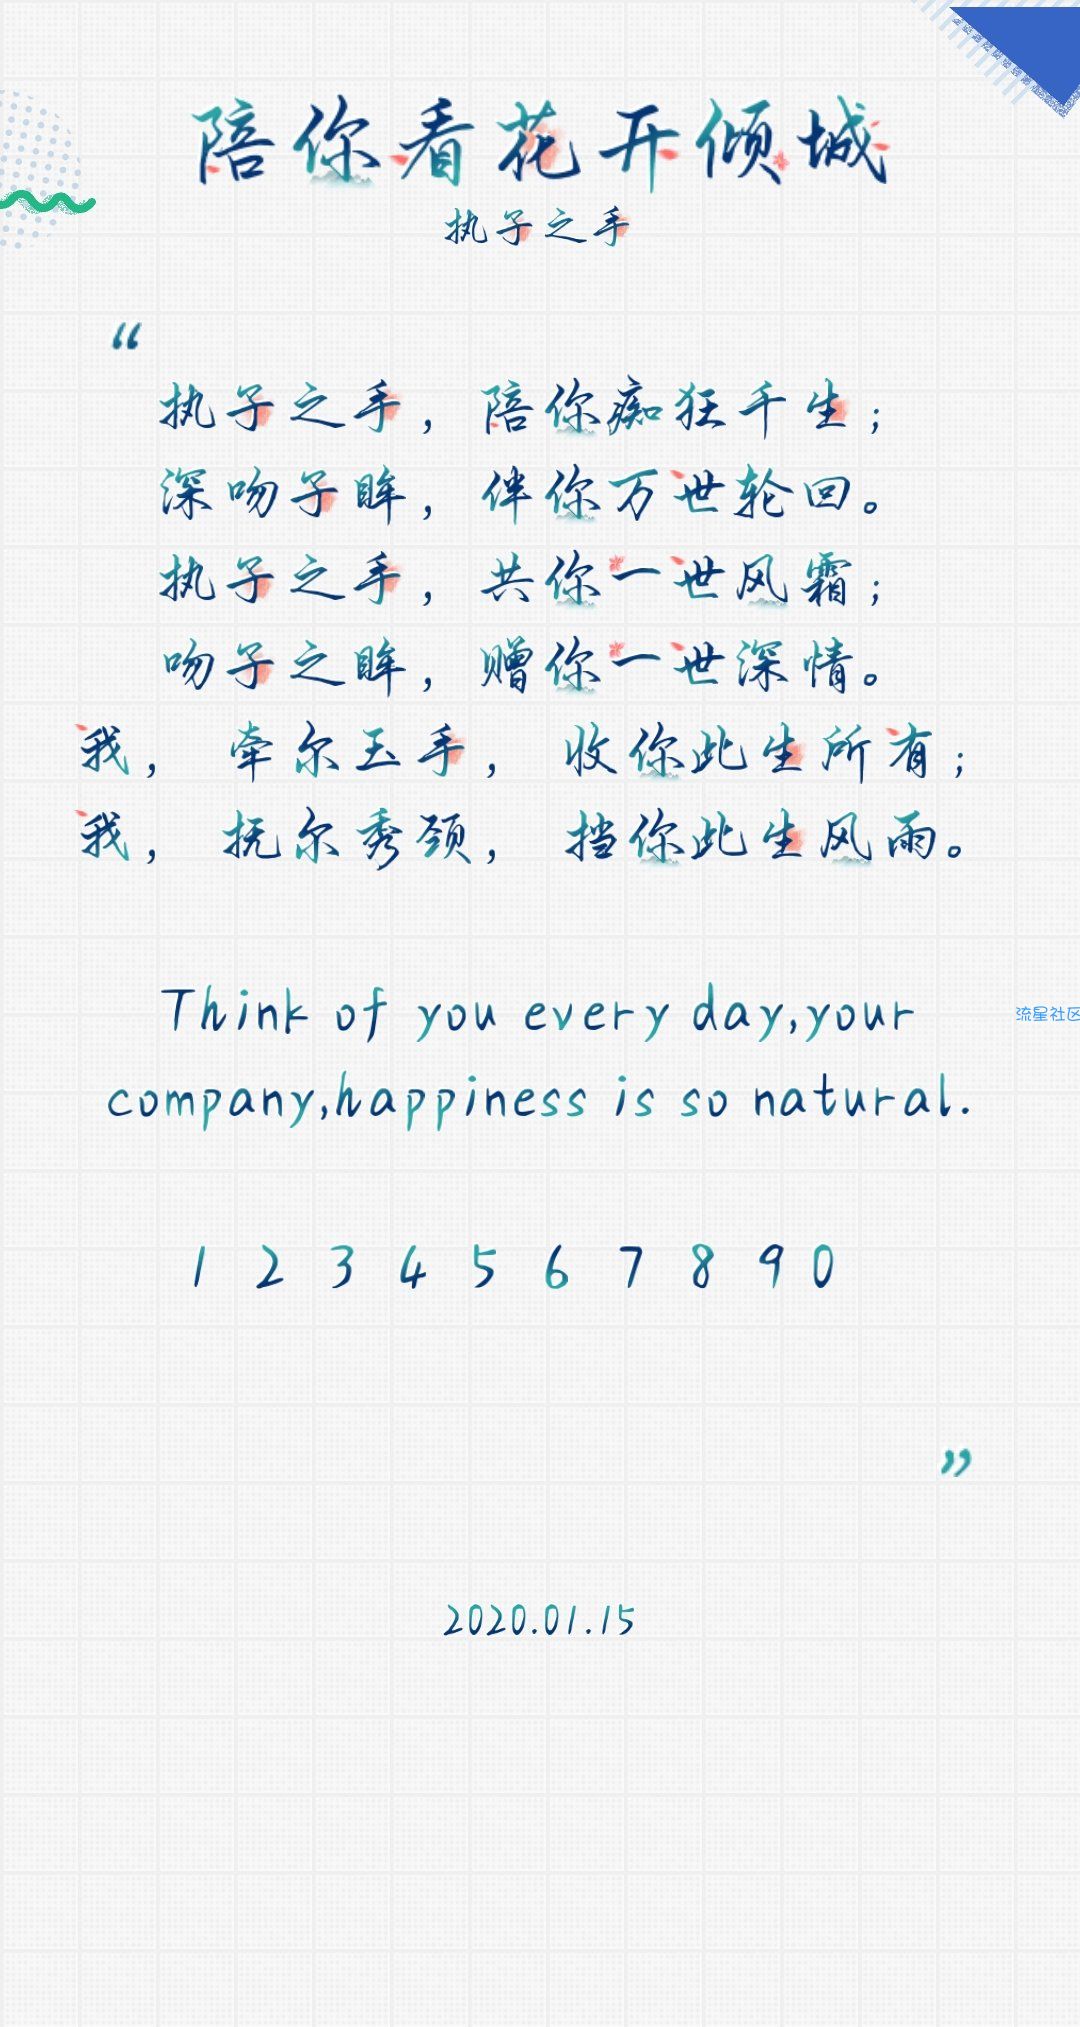 陪你看花开倾城
执子之手
“
执子之手，陪你痴狂千生；
深吻子眸，伴你万世轮回。
执子之手，共你一世风霜；
吻子之眸，赠你一世深情。
我， 牵尔玉手， 收你此生所有；
我， 抚尔秀颈， 挡你此生风雨。
Think of you every day,your
company,happiness is so natural.
流星社区
1 2 3 4 5 6 7 8 9 0
”
2020.01.15